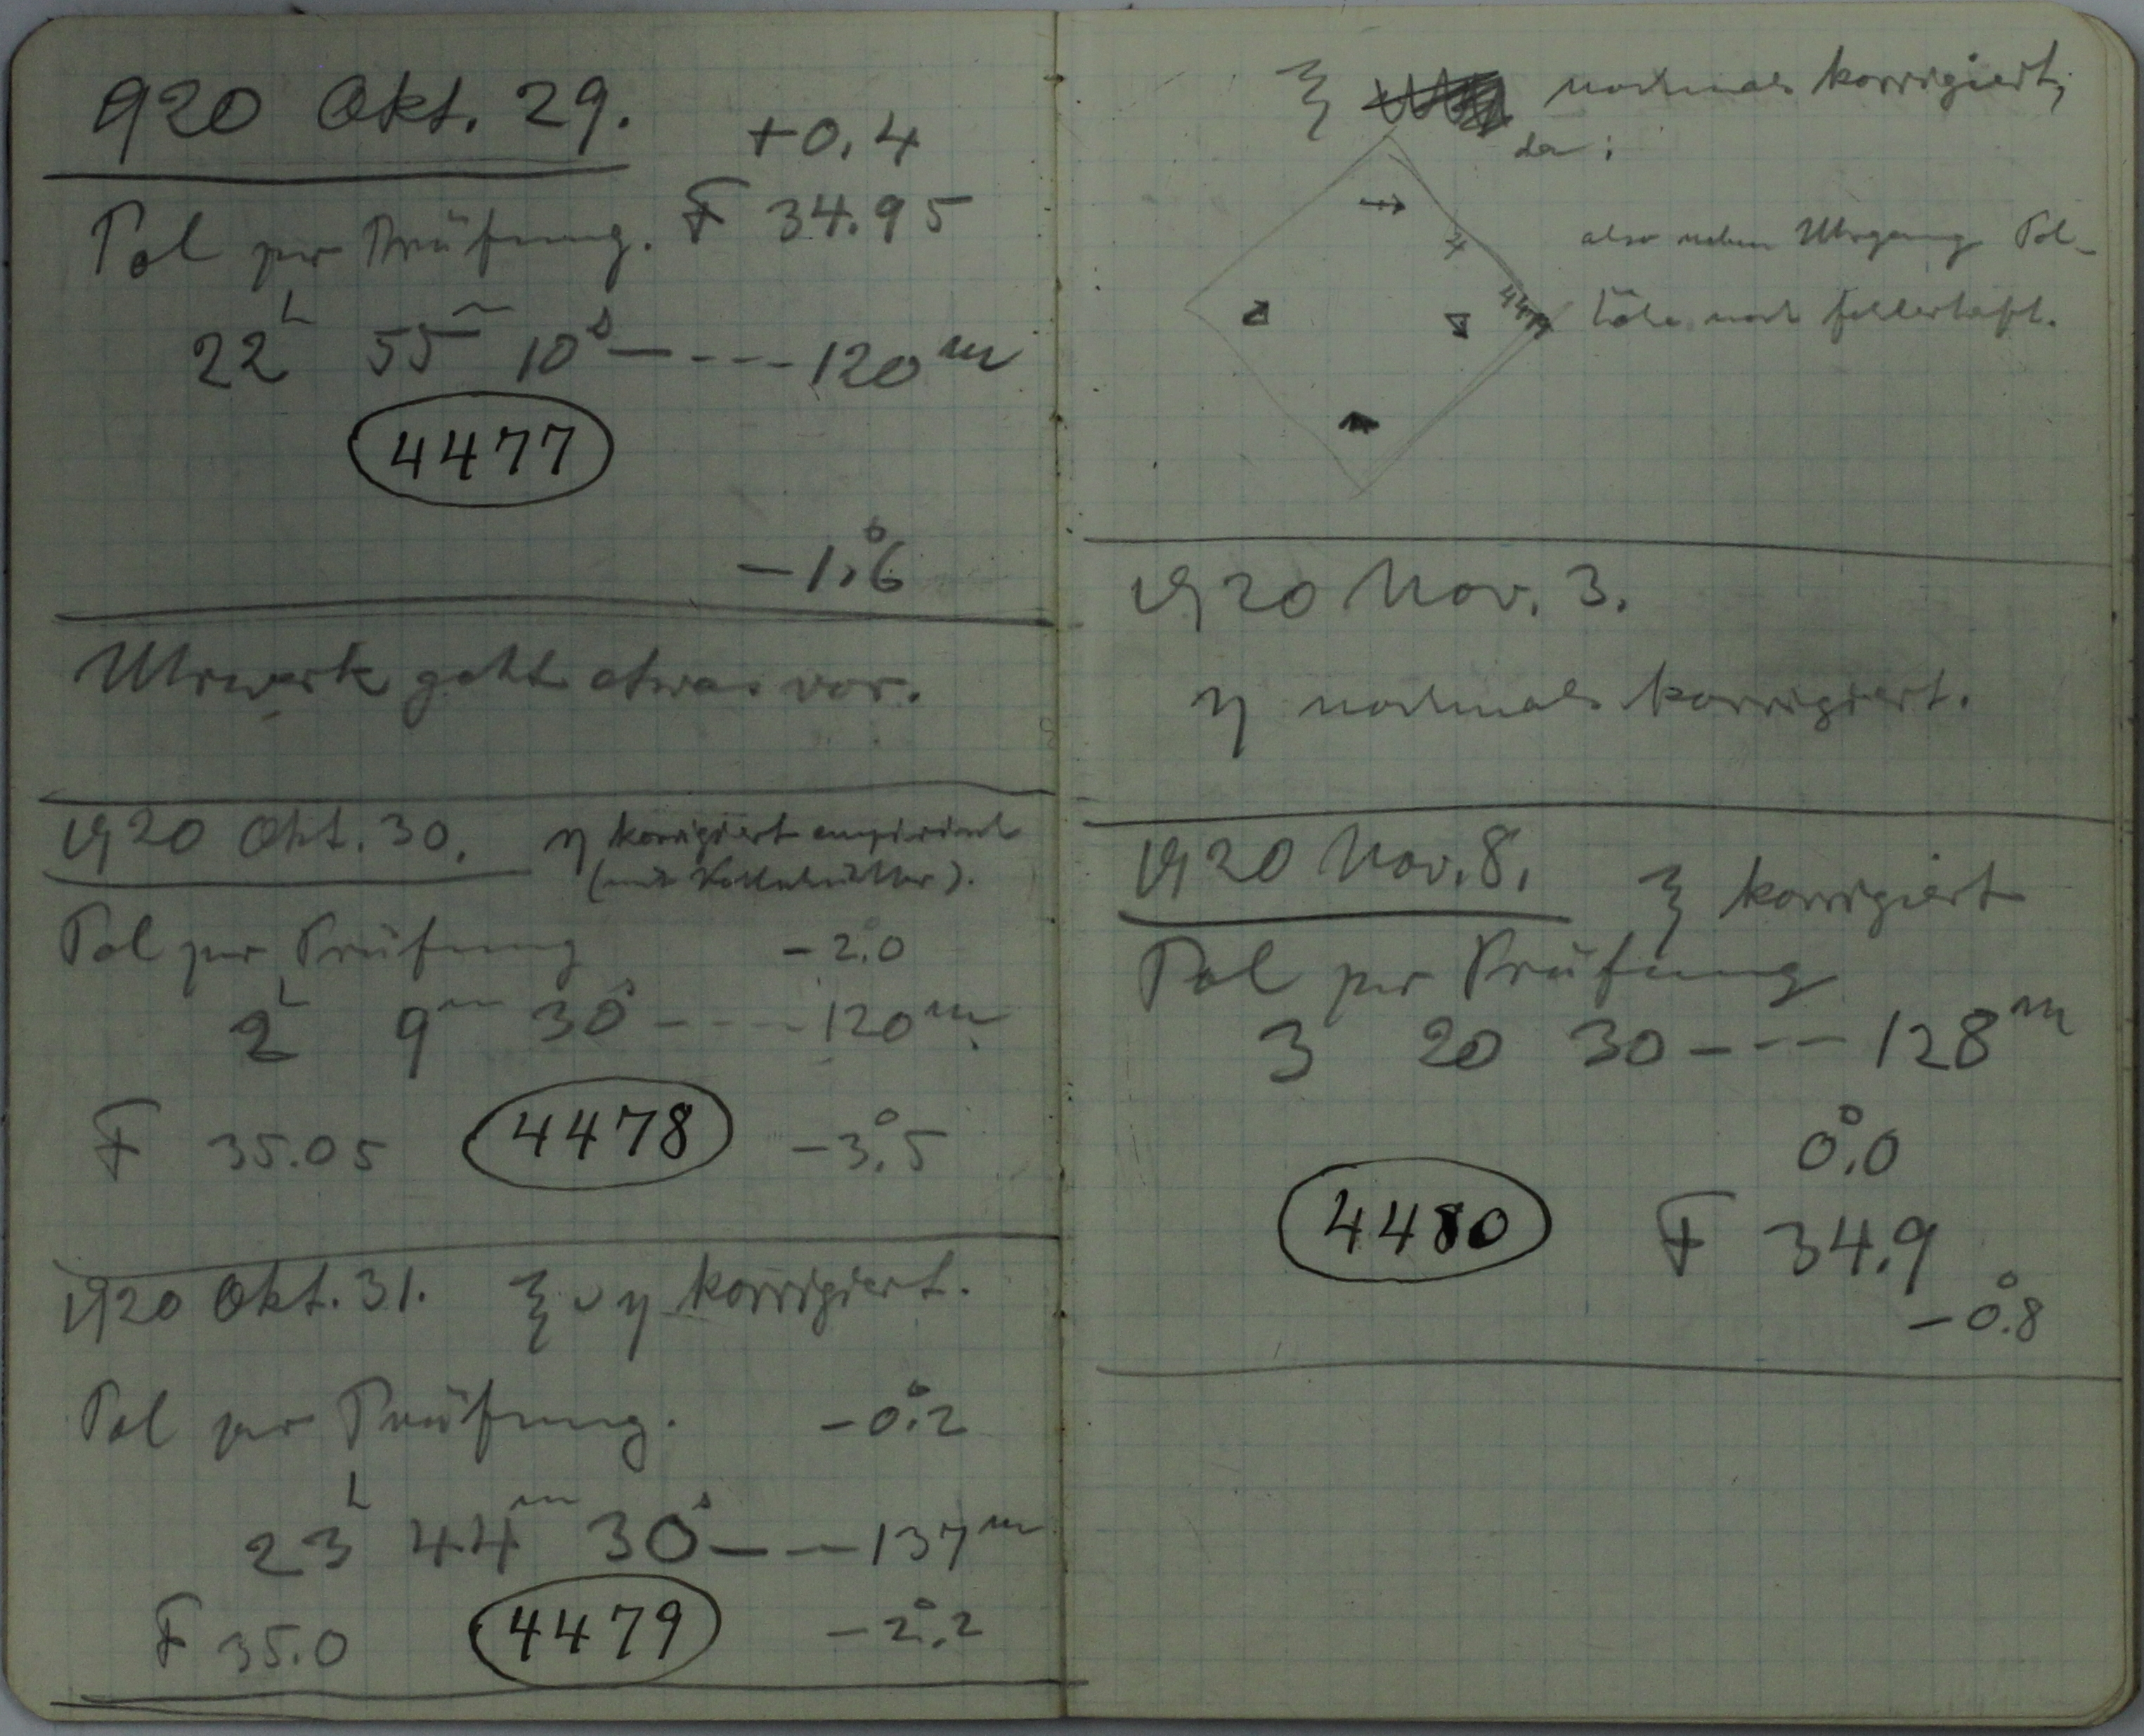 920 Okt. 29.
+0.4
Pol zur Prüfung. F 34.95
22h 55m 10s - - - - 120m
4477
-1°.6
Uhrwerk geht etwas vor.
1920 Okt. 30. η korrigiert empirisch
(mit Kollmüller).
Pol zur Prüfung -2.0
2h 9m 30s - - - - 120m
F 35.05 4478 -3°.5
1920 Okt. 31. ξ u η korrigiert.
Pol zur Prüfung. -0°.2
23h 44m 30s - - - 137m
F 35.0 4479 -2°.2
ξ nochmals korrigiert,
da:
also neben Uhrgang Pol-
höhe noch fehlerhaft.
1920 Nov. 3.
η nochmals korrigiert.
1920 Nov. 8. ξ korrigiert
Pol zur Prüfung
3 20 30 - - - 128m
0°.0
4480 F 34.9
-0°.8